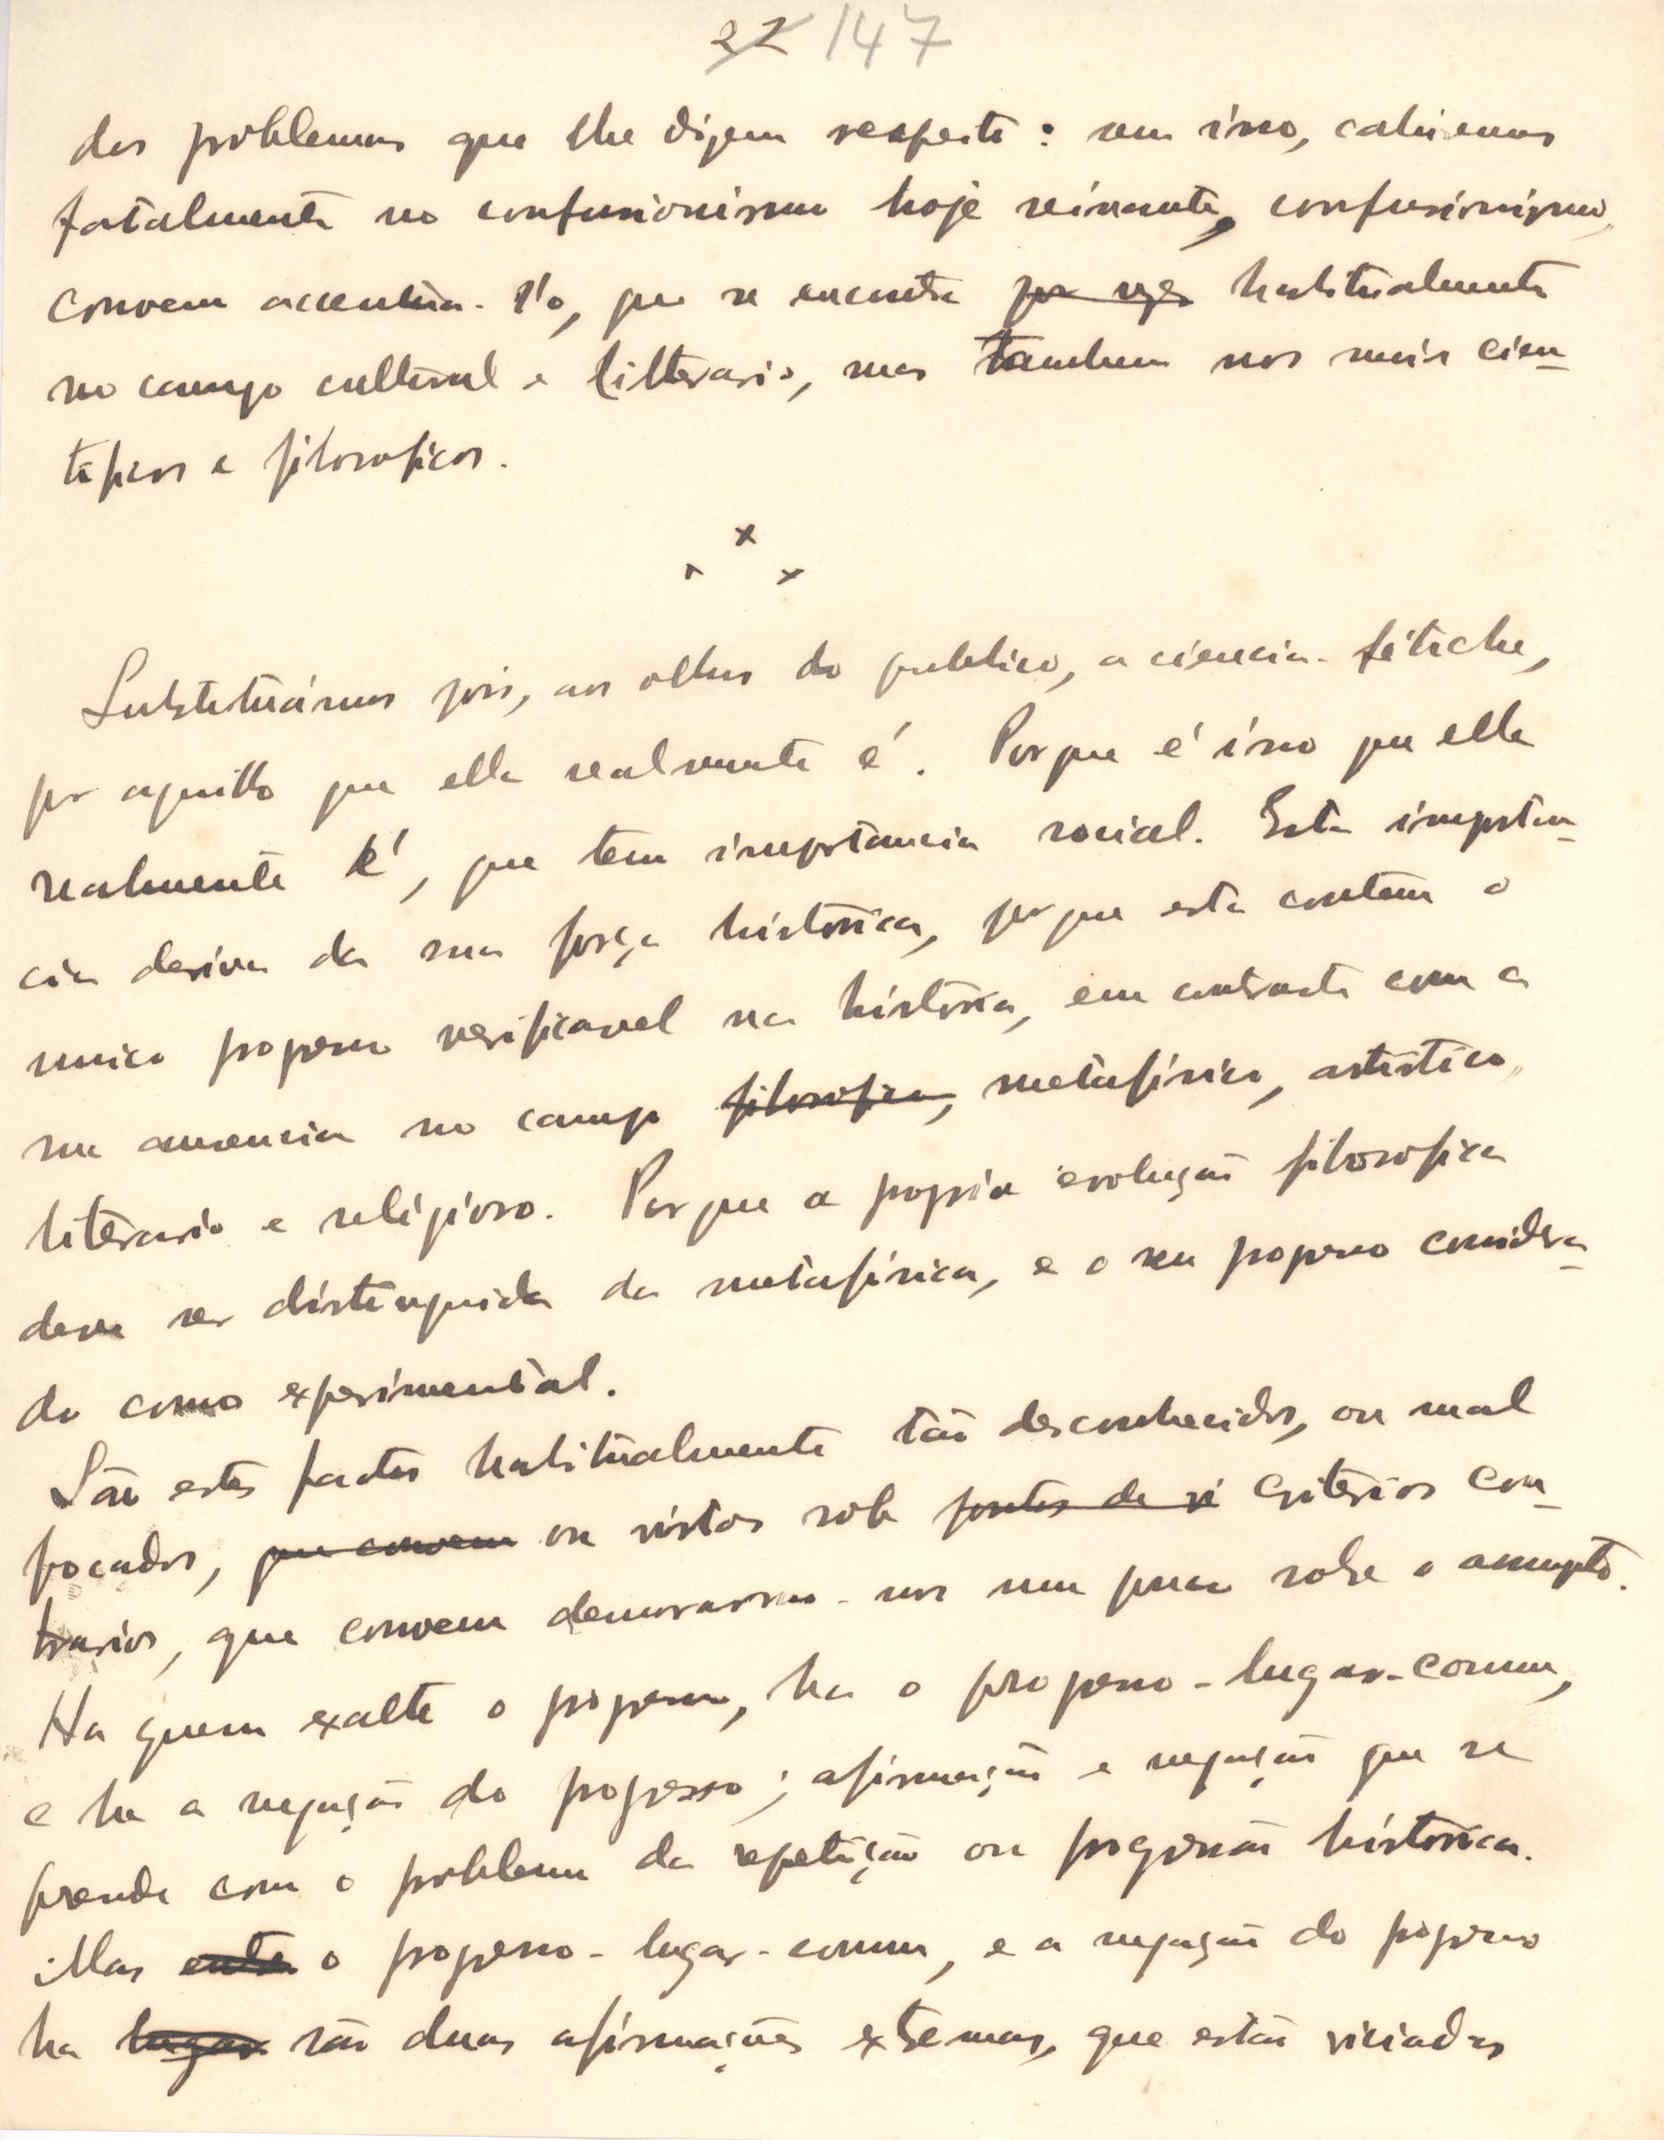 22 147
dos problemas que lhe dizem respeito: sem isso, cahiremos
fatalmente no confusionismo hoje reinante, confusionismo,
convem accentua-l'o, que se encontra por vezes habitualmente
no campo cultural e litterario, mas tambem nos meios cien-
tificos e filosoficos.
x
x x
Substituámos pois, aos olhos do publico, a ciencia-fétiche,
por aquillo que ella realmente é. Porque é isso que ella
realmente é, que tem importancia social. Esta importan-
cia deriva da sua força historica, porque esta contém o
unico progresso verificavel na historia, em contraste com a
sua ausencia no campo filosofico, metafisico, artistico,
literario e religioso. Porque a propria evolução filosofica
deve ser distinguida da metafisica, e o seu progresso considera-
do como experimental.
São estes factos habitualmente tão desconhecidos, ou mal
focados, que convem ou vistos sob pontos de vi criterios con-
trarios, que convem demorarmo-nos um pouco sobre o assumpto.
Ha quem exalte o progresso, ha o progresso-lugar-comum,
e ha a negação do progresso; afirmação e negação que se
prende com o problema da repetição ou progressão historica.
Mas entre o progresso-lugar-comum, e a negação do progresso
ha lugar são duas afirmações extremas, que estão viciadas